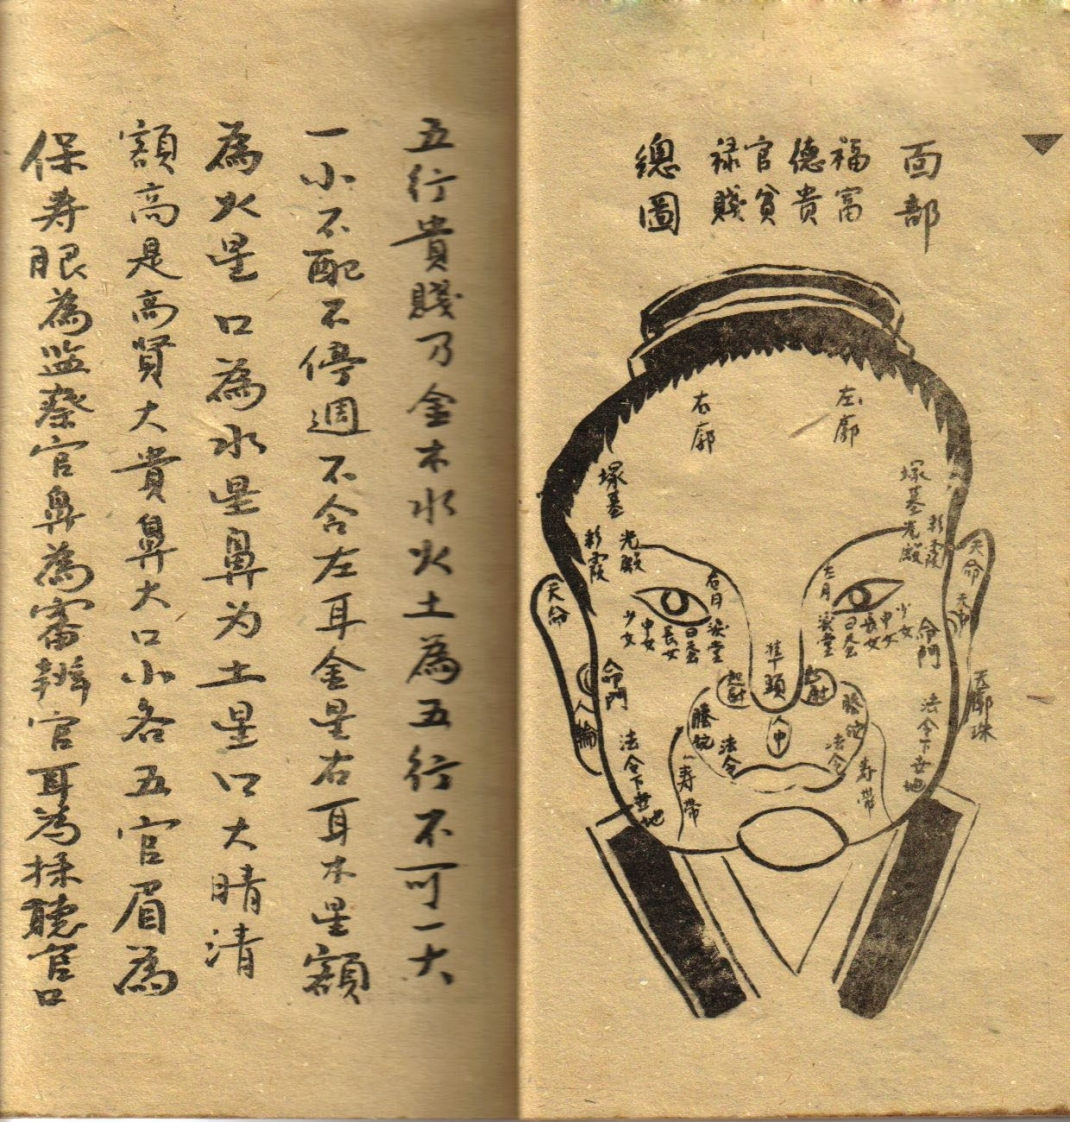 面部
福富
德贵
官贫
禄賤
總圖
左廓
右廓
塚墓
塚墓
光殿
彩霞
光殿
彩霞
天命
天命
左目
右目
淚堂
淚堂
日蚕
日蚕
長女
長女
中女
中女
少女
少女
命門
命門
準頭
人中
人輪
天廓珠
螣蛇
螣蛇
法令
法令
法令下
法令下
寿帶
寿帶
五行貴賤乃金木水火土為五行不可一大
一小不配不停週不合左耳金星右耳木星額
為火星口為水星鼻为土星口大睛清
額高是高賢大貴鼻大口小各五官眉為
保寿眼為监察官鼻為審辨官耳為採聽官口